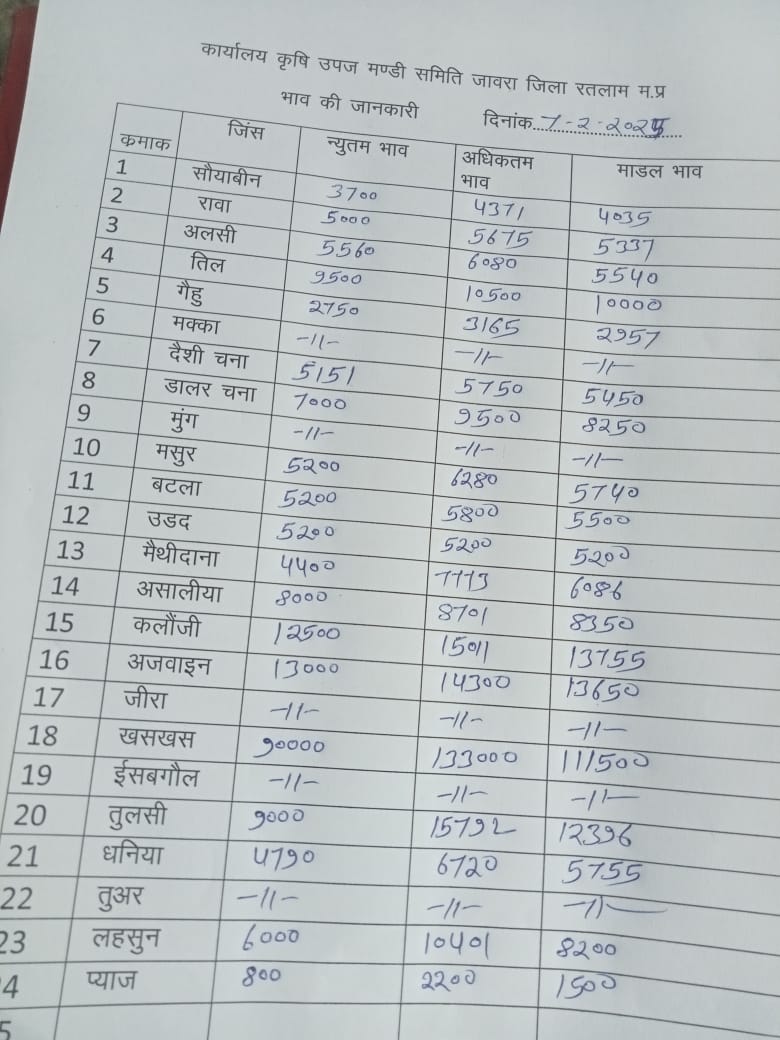 कार्यालय कृषि उपज मण्डी समिति जावरा जिला रतलाम म.प्र
भाव की जानकारी दिनांक...7-2-2025
कमाक जिंस न्युतम भाव अधिकतम भाव माडल भाव
1 सौयाबीन 3700 4371 4035
2 रावा 5000 5675 5337
3 अलसी 5560 6080 5540
4 तिल 9500 10500 10000
5 गैहु 2750 3165 2957
6 मक्का -11- -11- -11-
7 दैशी चना 5151 5750 5450
8 डालर चना 7000 9500 8250
9 मुंग -11- -11- -11-
10 मसुर 5200 6280 5740
11 बटला 5200 5800 5500
12 उडद 5200 5200 5200
13 मैथीदाना 4400 7773 6086
14 असालीया 8000 8701 8350
15 कलौंजी 12500 15011 13755
16 अजवाइन 13000 14300 13650
17 जीरा -11- -11- -11-
18 खसखस 90000 133000 111500
19 ईसबगौल -11- -11- -11-
20 तुलसी 9000 15792 12396
21 धनिया 4790 6720 5755
22 तुअर -11- -11- -11-
23 लहसुन 6000 10401 8200
4 प्याज 800 2200 1500
5